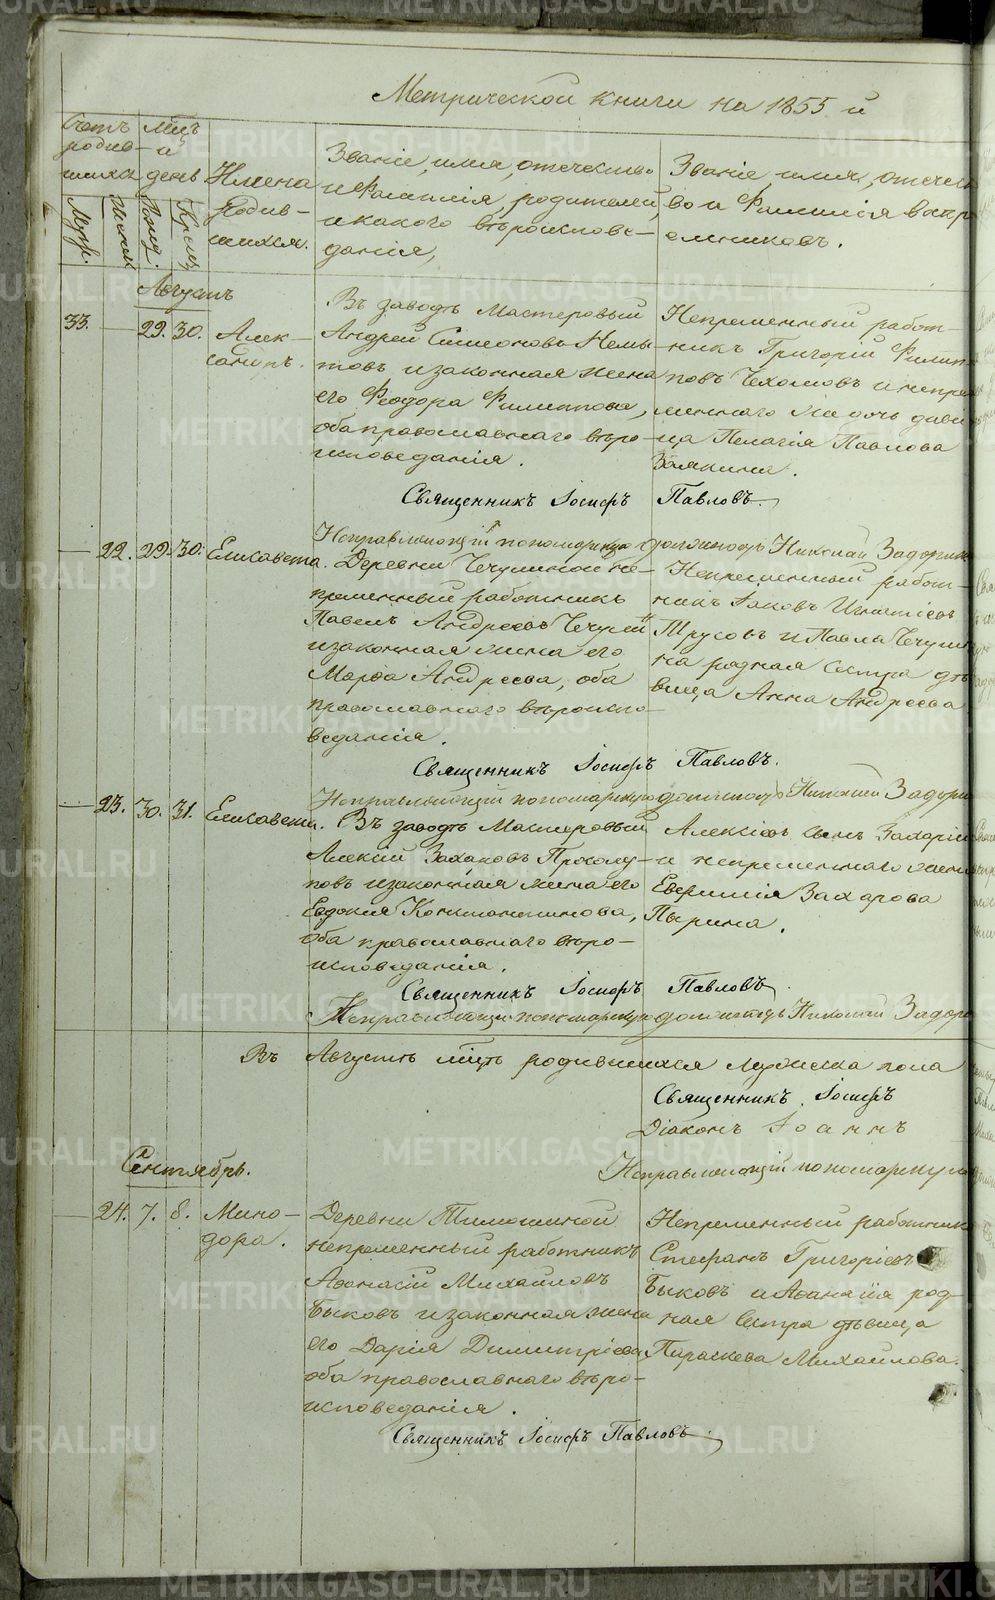 Метрической книги на 1855 й
Счетъ родив-шихся
Мѣцъ и день
Имена родив-шихся.
Муж. Женск. Рожд. Крещ.
Званіе, имя, отечество и Фамилія родителей, и какого вѣроиспове-данія,
Званіе, имя, отечест-во и Фамилія воспри-емниковъ.
Августъ
33. 29. 30. Алек-сандръ.
Въ заводѣ Мастеровый
Андрей Симеоновъ Немы-
товъ и законная жена
его Феодора Филиппова,
оба православнаго вѣро-
исповеданія.
Непременный работ-
никъ Григорій Филип-
повъ Чехомовъ и непре-
меннаго дочь деви-
ца Пелагія Павлова
Заякина.
Священникъ Іосифъ Павловъ.
Исправляющій пономарскую должность Николай Задорин
22. 29. 30. Елисавета.
Деревни Чечулиной не-
пременный работникъ
Павелъ Андреевъ Чечулинъ
и законная жена его
Марфа Андреева, оба
православнаго вѣроиспо-
веданія.
Непременный работ-
никъ Іаковъ Игнатіевъ
Трусовъ и Павла Чечули-
на родная сестра дѣ-
вица Анна Андреева
Священникъ Іосифъ Павловъ.
Исправляющій пономарскую должность Николай Задори
23. 30. 31. Елисавета.
Въ заводѣ Мастеровый
Алексій Захаровъ Прокопу-
повъ и законная жена его
Евдокия Константинова,
оба православнаго вѣро-
исповеданія.
Алексіевъ сынъ Захарій
и непременнаго жена
Евфимія Захарова
Пырина.
Священникъ Іосифъ Павловъ
Исправляющій пономарскую должность Николай Задор
Въ Августѣ мѣцѣ родившихся мужеска пола
Священникъ Іосифъ
Діаконъ Іоаннъ
Исправляющій пономарскую
Сентябрь.
24. 7. 8. Мино-дора.
Деревни Тимошиной
непременный работникъ
Афанасій Михайловъ
Быковъ и законная жена
его Дарія Димитріева,
оба православнаго вѣро-
исповеданія.
Непременный работникъ
Стефанъ Григоріевъ
Быковъ и Афанасія род-
ная сестра дѣвица
Параскева Михайлова.
Священникъ Іосифъ Павловъ
METRIKI.GASO-URAL.RU